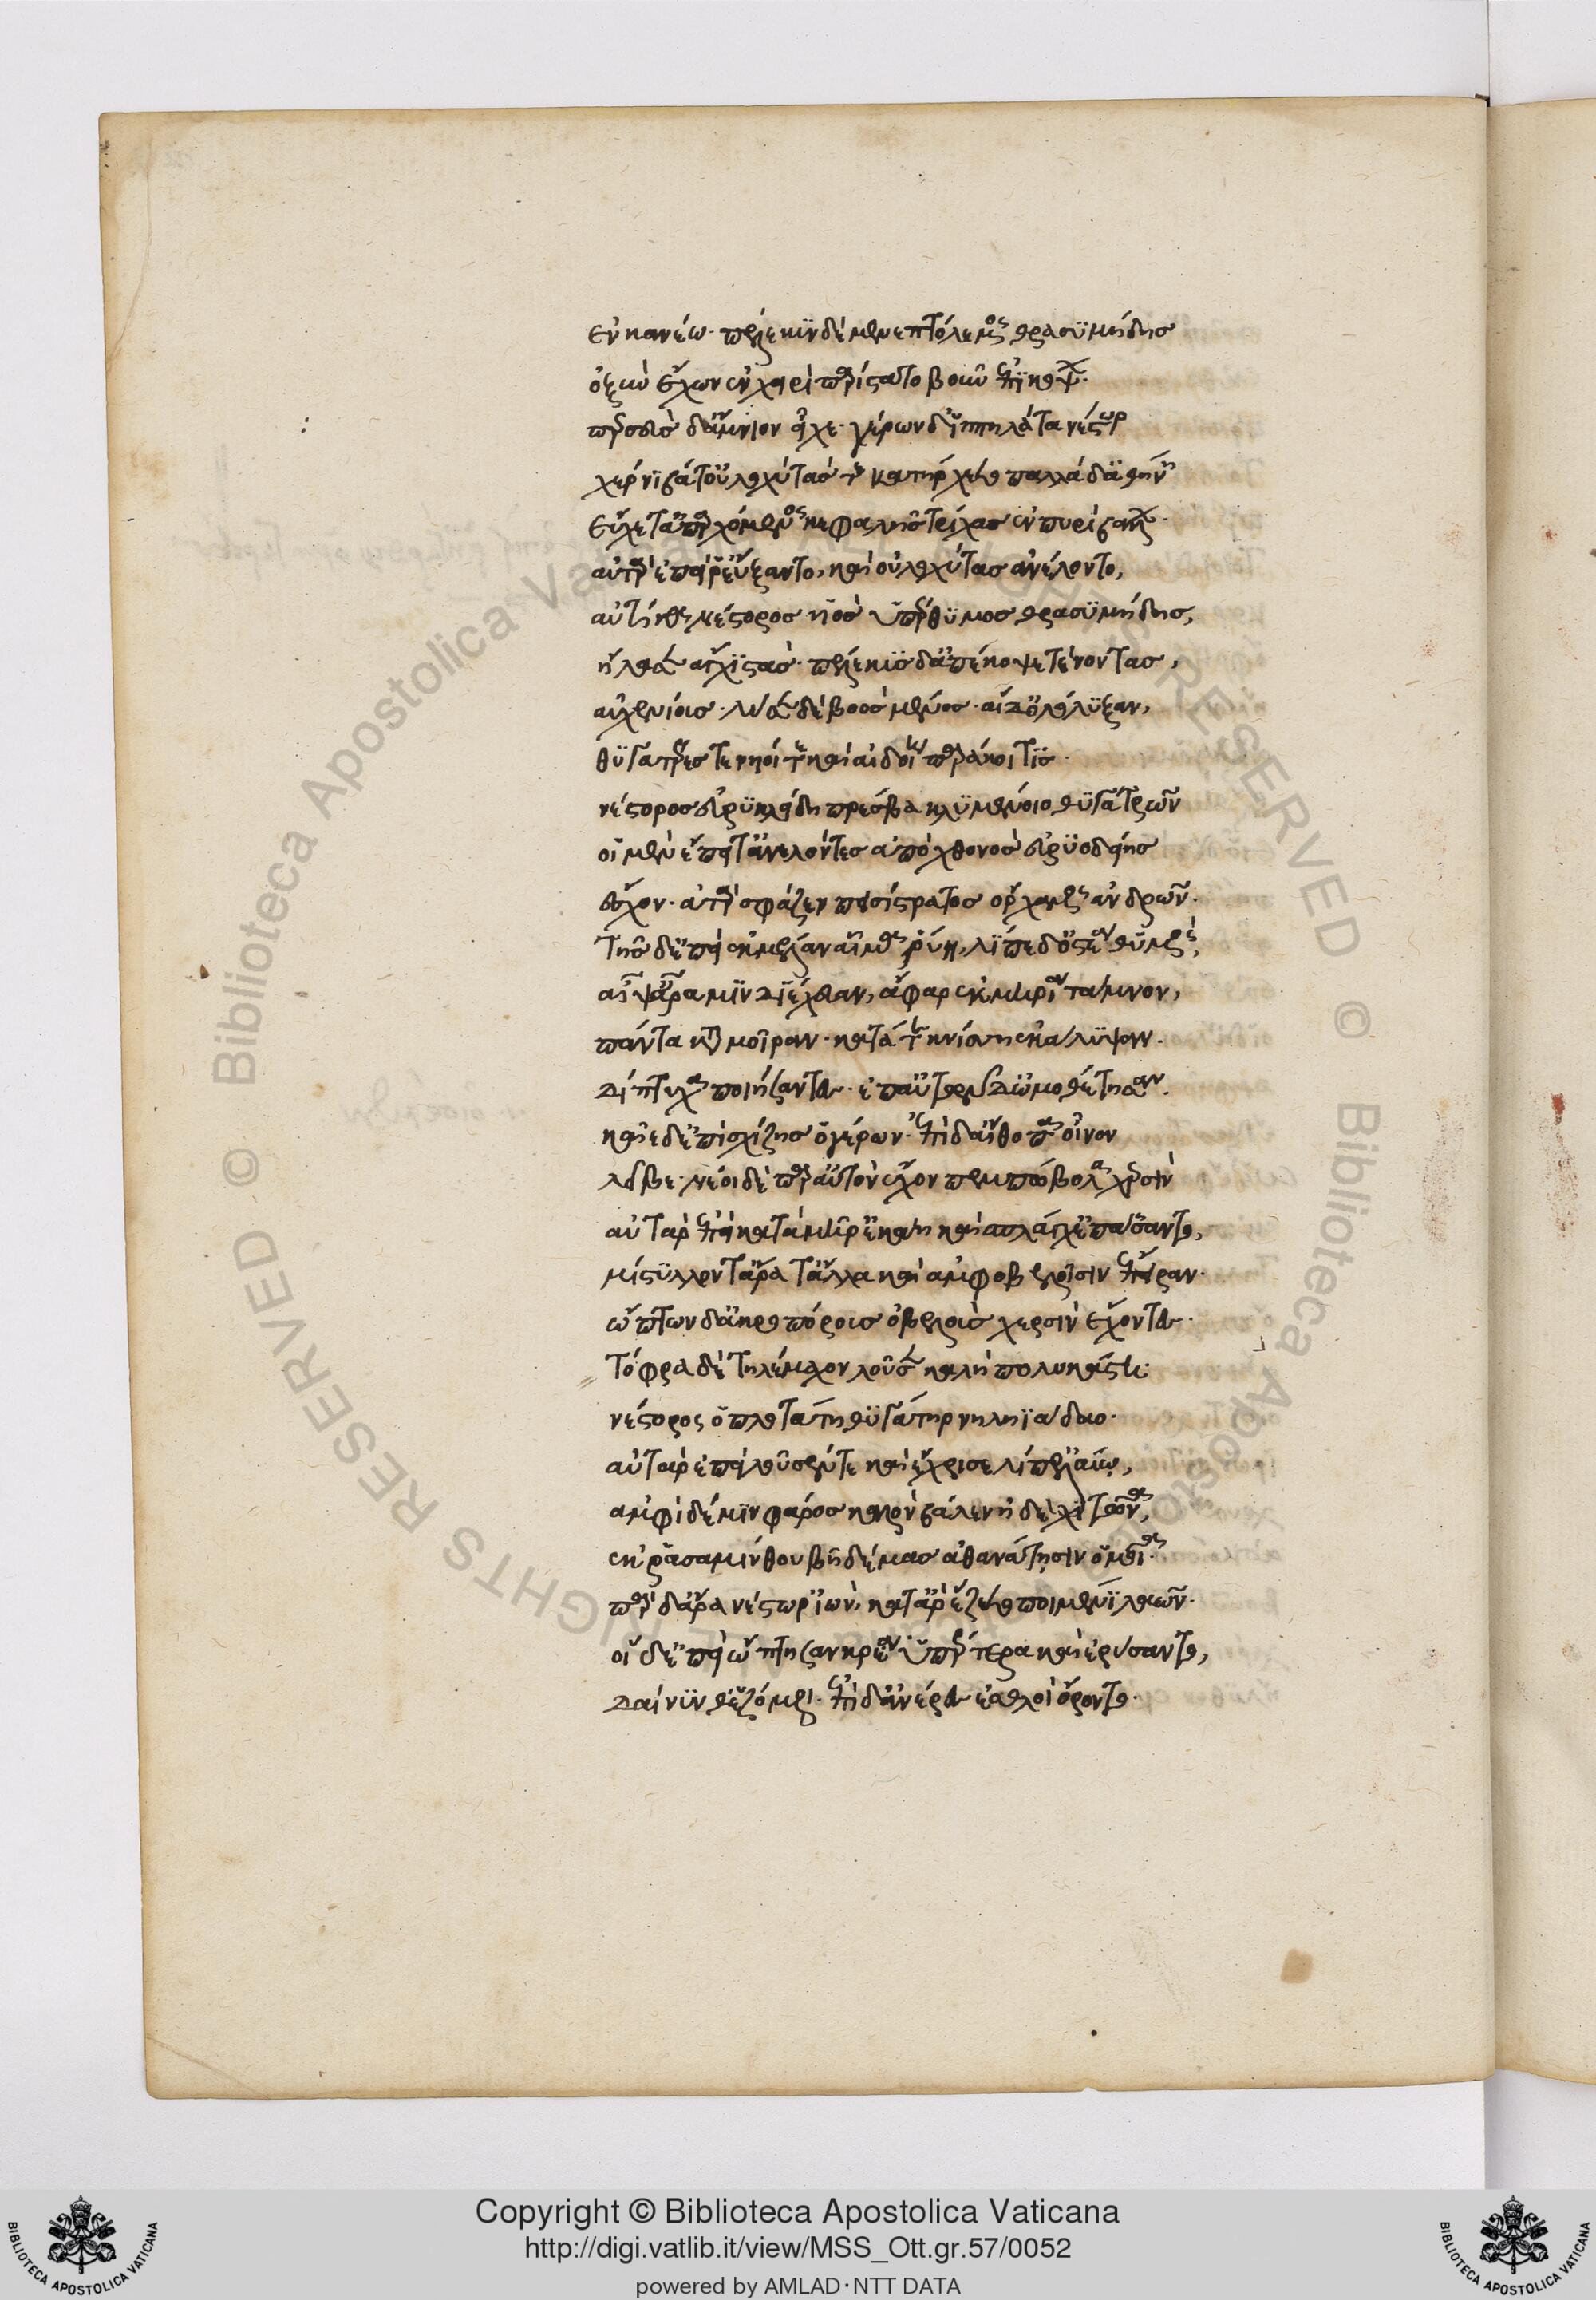 ἐν κανέῳ· πέλεκυν δὲ μενεπτόλεμος θρασυμήδης
ὀξὺν ἔχων ἐν χειρὶ παρίστατο βοῦν ἐπικόψων·
περσεὺς δ' ἀμνίον εἶχε· γέρων δ' ἱππηλάτα νέστωρ
χέρνιβά τ' οὐλοχύτας τε κατήρχετο πολλὰ δ' ἀθήνῃ
εὔχετ' ἀπαρχόμενος κεφαλῆς τρίχας ἐν πυρὶ βάλλων·
αὐτὰρ ἐπεί ῥ' εὔξαντο, καὶ οὐλοχύτας ἀνέλοντο,
αὐτίκα νέστορος υἱὸς ὑπέρθυμος θρασυμήδης,
ἤλασεν ἄγχι στάς· πέλεκυς δ' ἀπέκοψε τένοντας,
αὐχενίους· λῦσεν δὲ βοὸς μένος· αἱ δ' ὀλόλυξαν,
θυγατέρες τε νυοί τε καὶ αἰδοίη παράκοιτις·
νέστορος εὐρυδίκη πρέσβα κλυμένοιο θυγατρῶν
οἱ μὲν ἔπειτ' ἀνελόντες ἀπὸ χθονὸς εὐρυοδείης
ἔσχον· ἀτὰρ σφάξεν πεισίστρατος ὄρχαμος ἀνδρῶν·
τῆς δ' ἐπεὶ ἐκ μέλαν αἷμα ῥύη, λίπε δ' ὀστέα θυμός,
αἶψ' ἄρα μιν διέχευαν, ἄφαρ ἐκ μηρία τάμνον,
πάντα κατὰ μοῖραν· κατά τε κνίσῃ ἐκάλυψαν·
δίπτυχα ποιήσαντες· ἐπ' αὐτῶν δ' ὠμοθέτησαν·
καῖε δ' ἐπὶ σχίζῃς ὁ γέρων· ἐπὶ δ' αἴθοπα οἶνον
λεῖβε· νέοι δὲ παρ' αὐτὸν ἔχον πεμπώβολα χερσὶν
αὐτὰρ ἐπεὶ κατὰ μῆρ' ἐκάη καὶ σπλάγχν' ἐπάσαντο,
μίστυλλόν τ' ἄρα τἄλλα καὶ ἀμφ' ὀβελοῖσιν ἔπειραν·
ὤπτων δ' ἀκροπόρους ὀβελοὺς χερσὶν ἔχοντες·
τόφρα δὲ τηλέμαχον λοῦσεν καλὴ πολυκάστη·
νέστορος ὁπλοτάτη θυγάτηρ νηληϊάδαο·
αὐτὰρ ἐπεὶ λοῦσέν τε καὶ ἔχρισε λίπ' ἐλαίῳ,
ἀμφὶ δέ μιν φᾶρος καλὸν βάλεν ἠδὲ χιτῶνα,
ἐκ ῥ' ἀσαμίνθου βῆ δέμας ἀθανάτοισιν ὁμοῖος·
πὰρ δ' ἄρα νέστωρ' ἰὼν, κατ' ἄρ' ἕζετο ποιμένι λαῶν·
οἱ δ' ἐπεὶ ὤπτησαν κρέα ὑπέρτερα καὶ ἐρύσαντο,
δαίνυνθ' ἑζόμενοι· ἐπὶ δ' ἀνέρες ἐσθλοὶ ὄροντο·
Copyright © Biblioteca Apostolica Vaticana
http://digi.vatlib.it/view/MSS_Ott.gr.57/0052
powered by AMLAD·NTT DATA